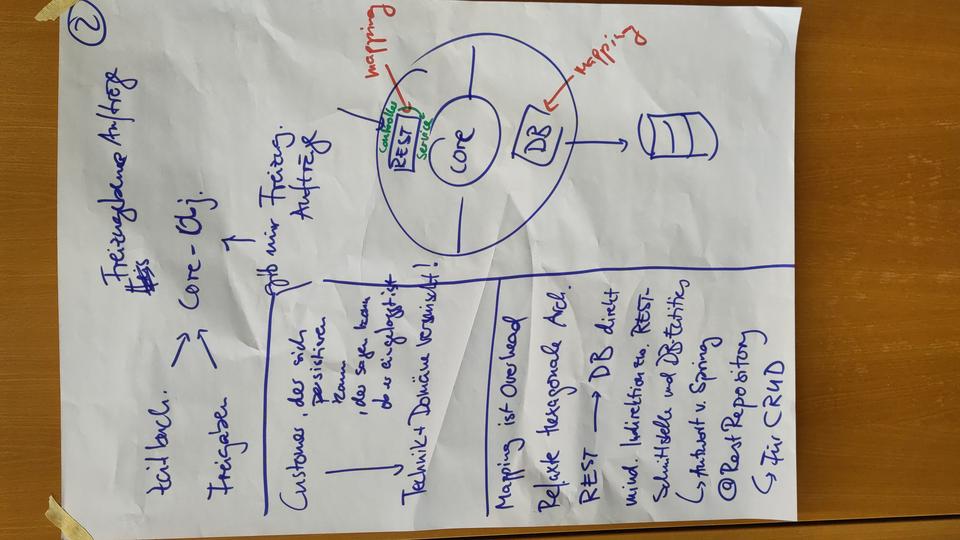 2
Freizugebene Aufträge
Zeitbuch.
Freigaben
Core-Obj.
gib mir Freizug.
Aufträge
mapping
mapping
Controller
REST
Service
Core
DB
Customer, der sich
persistieren
kann
, der sagen kann
ob er eingeloggt ist
Technik + Domäne vermischt!
Mapping ist Overhead
Relaxte hexagonale Arch.
REST → DB direkt
mind. Indirektion zw. REST-
Schnittstelle und DB Entities
↳ Antwort v. Spring
@RestRepository
↳ für CRUD